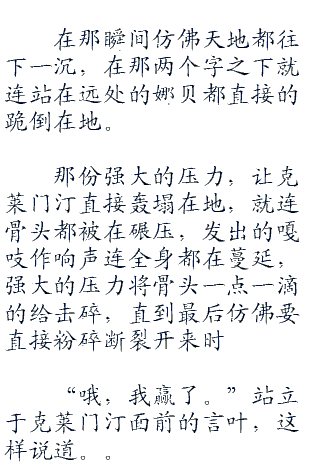 在那瞬间仿佛天地都往
下一沉，在那两个字之下就
连站在远处的娜贝都直接的
跪倒在地。
那份强大的压力，让克
莱门汀直接轰塌在地，就连
骨头都被在碾压，发出的嘎
吱作响声连全身都在蔓延，
强大的压力将骨头一点一滴
的给击碎，直到最后仿佛要
直接粉碎断裂开来时
“哦，我赢了。”站立
于克莱门汀面前的言叶，这
样说道。。